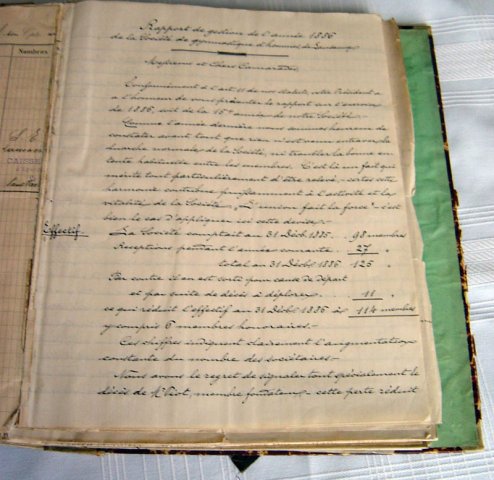 Nombres
CAISSE
Rapport de gestion de l'année 1886
de la Société de gymnastique d'hommes de Lausanne
Messieurs et Chers Camarades,
Conformément à l'art. 11 de nos statuts, votre Président a
l'honneur de vous présenter le rapport sur l'exercice
de 1886, soit de la 15me année de notre Société.
Comme l'année dernière nous sommes heureux de
constater avant tout que rien n'est venu entraver la
marche normale de la Société, ni troubler la bonne en-
tente habituelle entre les membres. C'est là un fait qui
mérite tout particulièrement d'être relevé, certes cette
harmonie contribue puissamment à l'activité et la
vitalité de la Société. "L'union fait la force" c'est
bien le cas d'appliquer ici cette devise.
Effectif
La Société comptait au 31 Décb. 1885. 98 membres
Réceptions pendant l'année courante 27 "
total au 31 Décbre 1886 125 "
Par contre il en est sorti pour cause de départ
et par suite de décès à déplorer 11 "
ce qui réduit l'effectif au 31 Décbre 1886 à 114 membres
y compris 6 membres honoraires.
Ces chiffres indiquent clairement l'augmentation
constante du nombre des sociétaires.
Nous avons le regret de signaler tout spécialement le
décès de Mr membre fondateur cette perte réduit